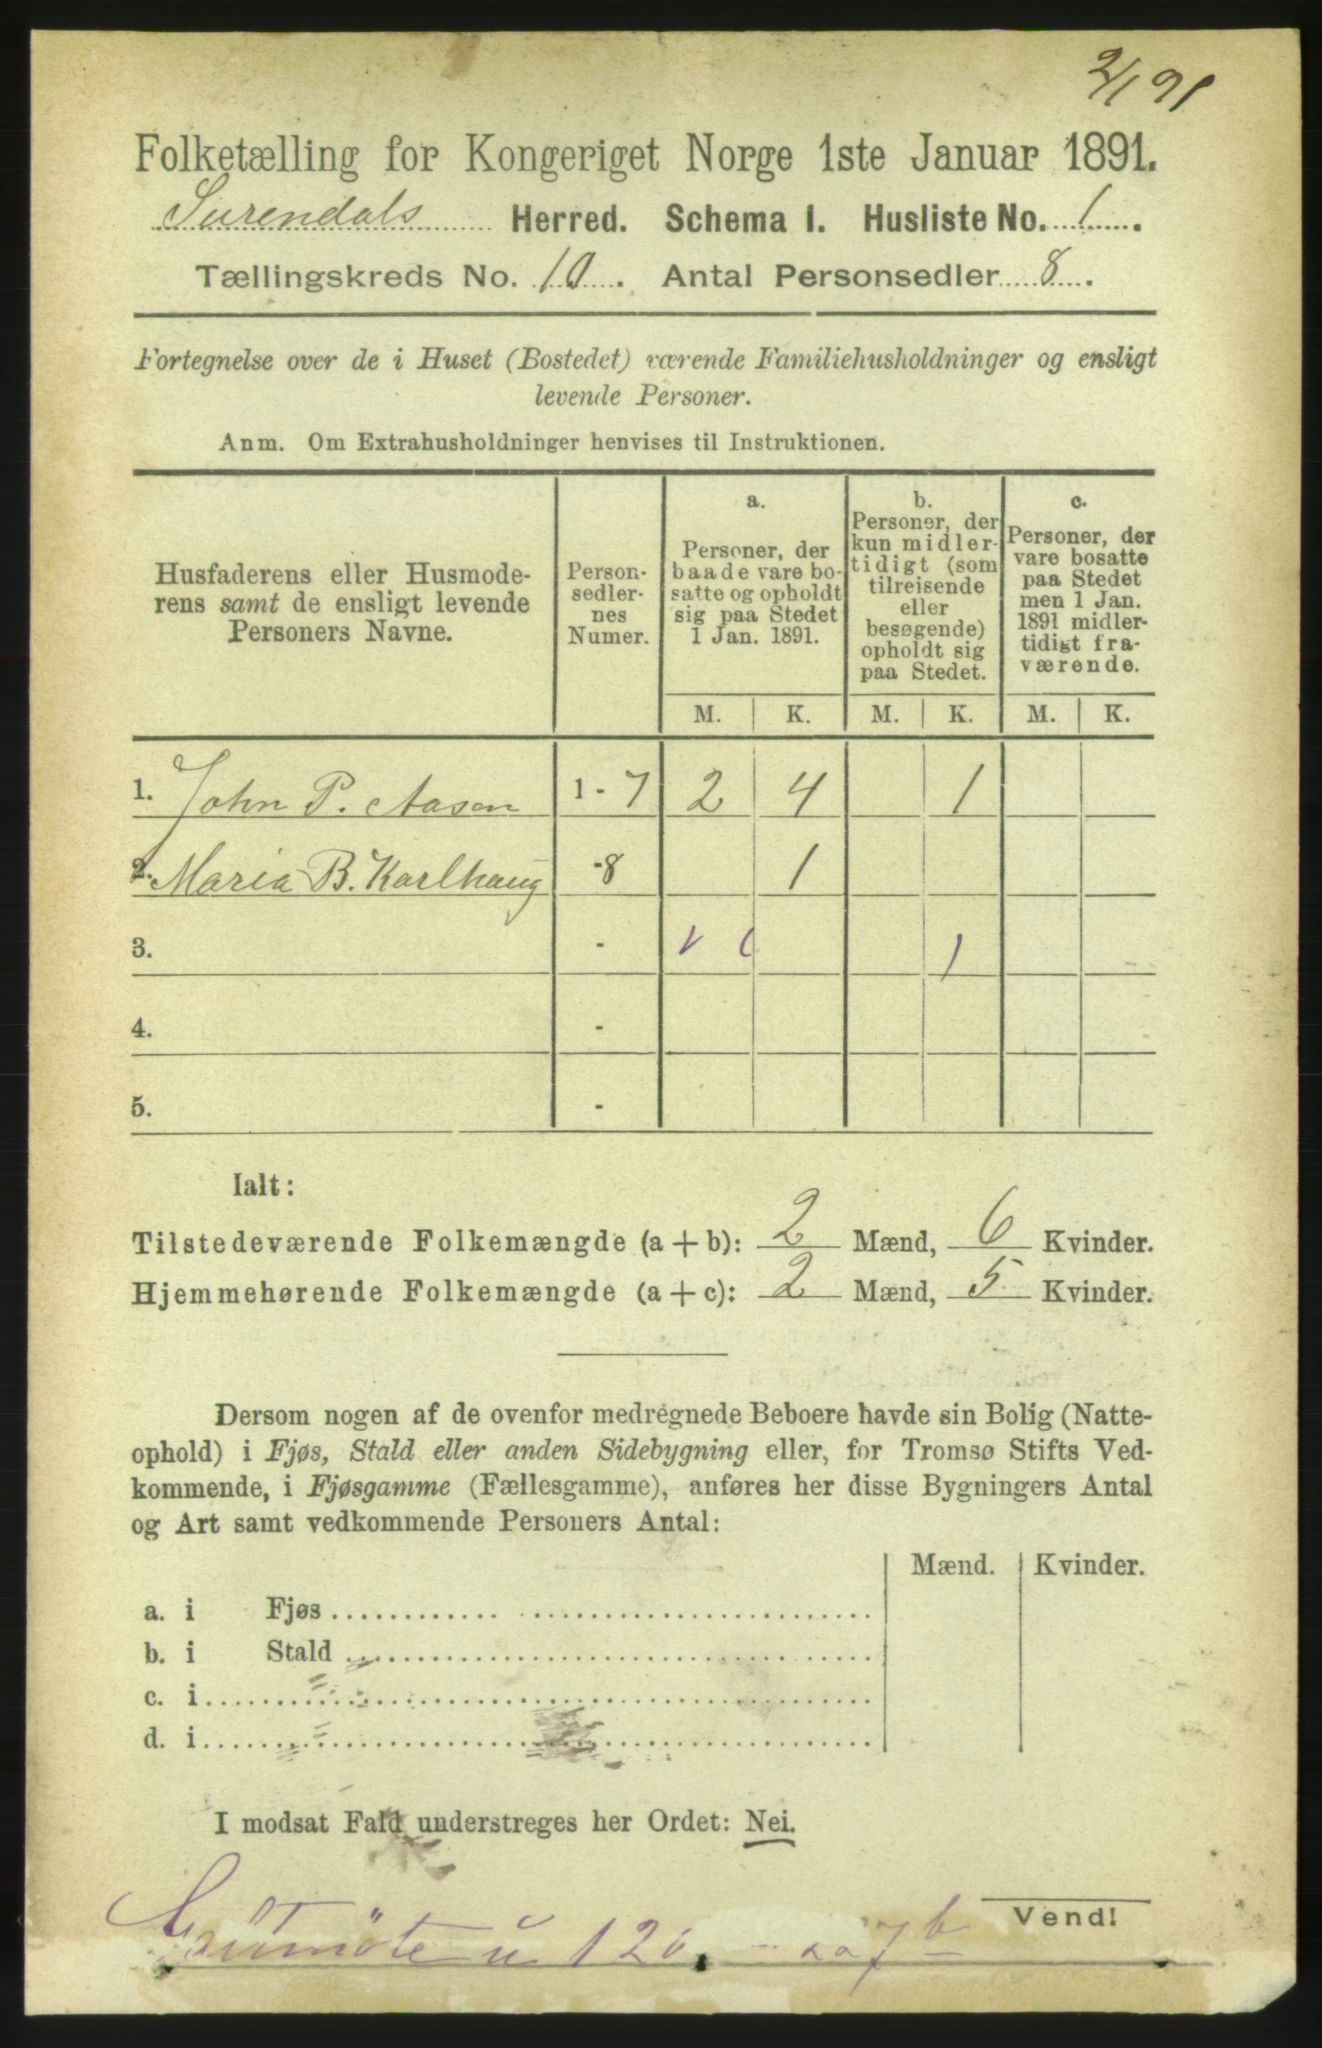 2/191
Folketælling for Kongeriget Norge 1ste Januar 1891.
Surendals Herred. Schema I. Husliste No. 1.
Tællingskreds No. 10. Antal Personsedler 8.
Fortegnelse over de i Huset (Bostedet) værende Familiehusholdninger og ensligt
levende Personer.
Anm. Om Extrahusholdninger henvises til Instruktionen.
Husfaderens eller Husmode-
rens samt de ensligt levende
Personers Navne.
Person-
sedler-
nes
Numer.
a.
Personer, der
baade vare bo-
satte og opholdt
sig paa Stedet
1 Jan. 1891.
b.
Personer, der
kun midler-
tidigt (som
tilreisende
eller
besøgende)
opholdt sig
paa Stedet.
c.
Personer, der
vare bosatte
paa Stedet
men 1 Jan.
1891 midler-
tidigt fra-
værende.
M. K. M. K. M. K.
1. John P. Aasen 1 - 7 2 4 1
2. Maria B. Karlhaug - 8 1
3. - 1
4. -
5. -
Ialt:
Tilstedeværende Folkemængde (a + b): 2 Mænd, 6 Kvinder.
Hjemmehørende Folkemængde (a + c): 2 Mænd, 5 Kvinder.
Dersom nogen af de ovenfor medregnede Beboere havde sin Bolig (Natte-
ophold) i Fjøs, Stald eller anden Sidebygning eller, for Tromsø Stifts Ved-
kommende, i Fjøsgamme (Fællesgamme), anføres her disse Bygningers Antal
og Art samt vedkommende Personers Antal:
Mænd. Kvinder.
a. i Fjøs
b. i Stald
c. i
d. i
I modsat Fald understreges her Ordet: Nei.
Vend!